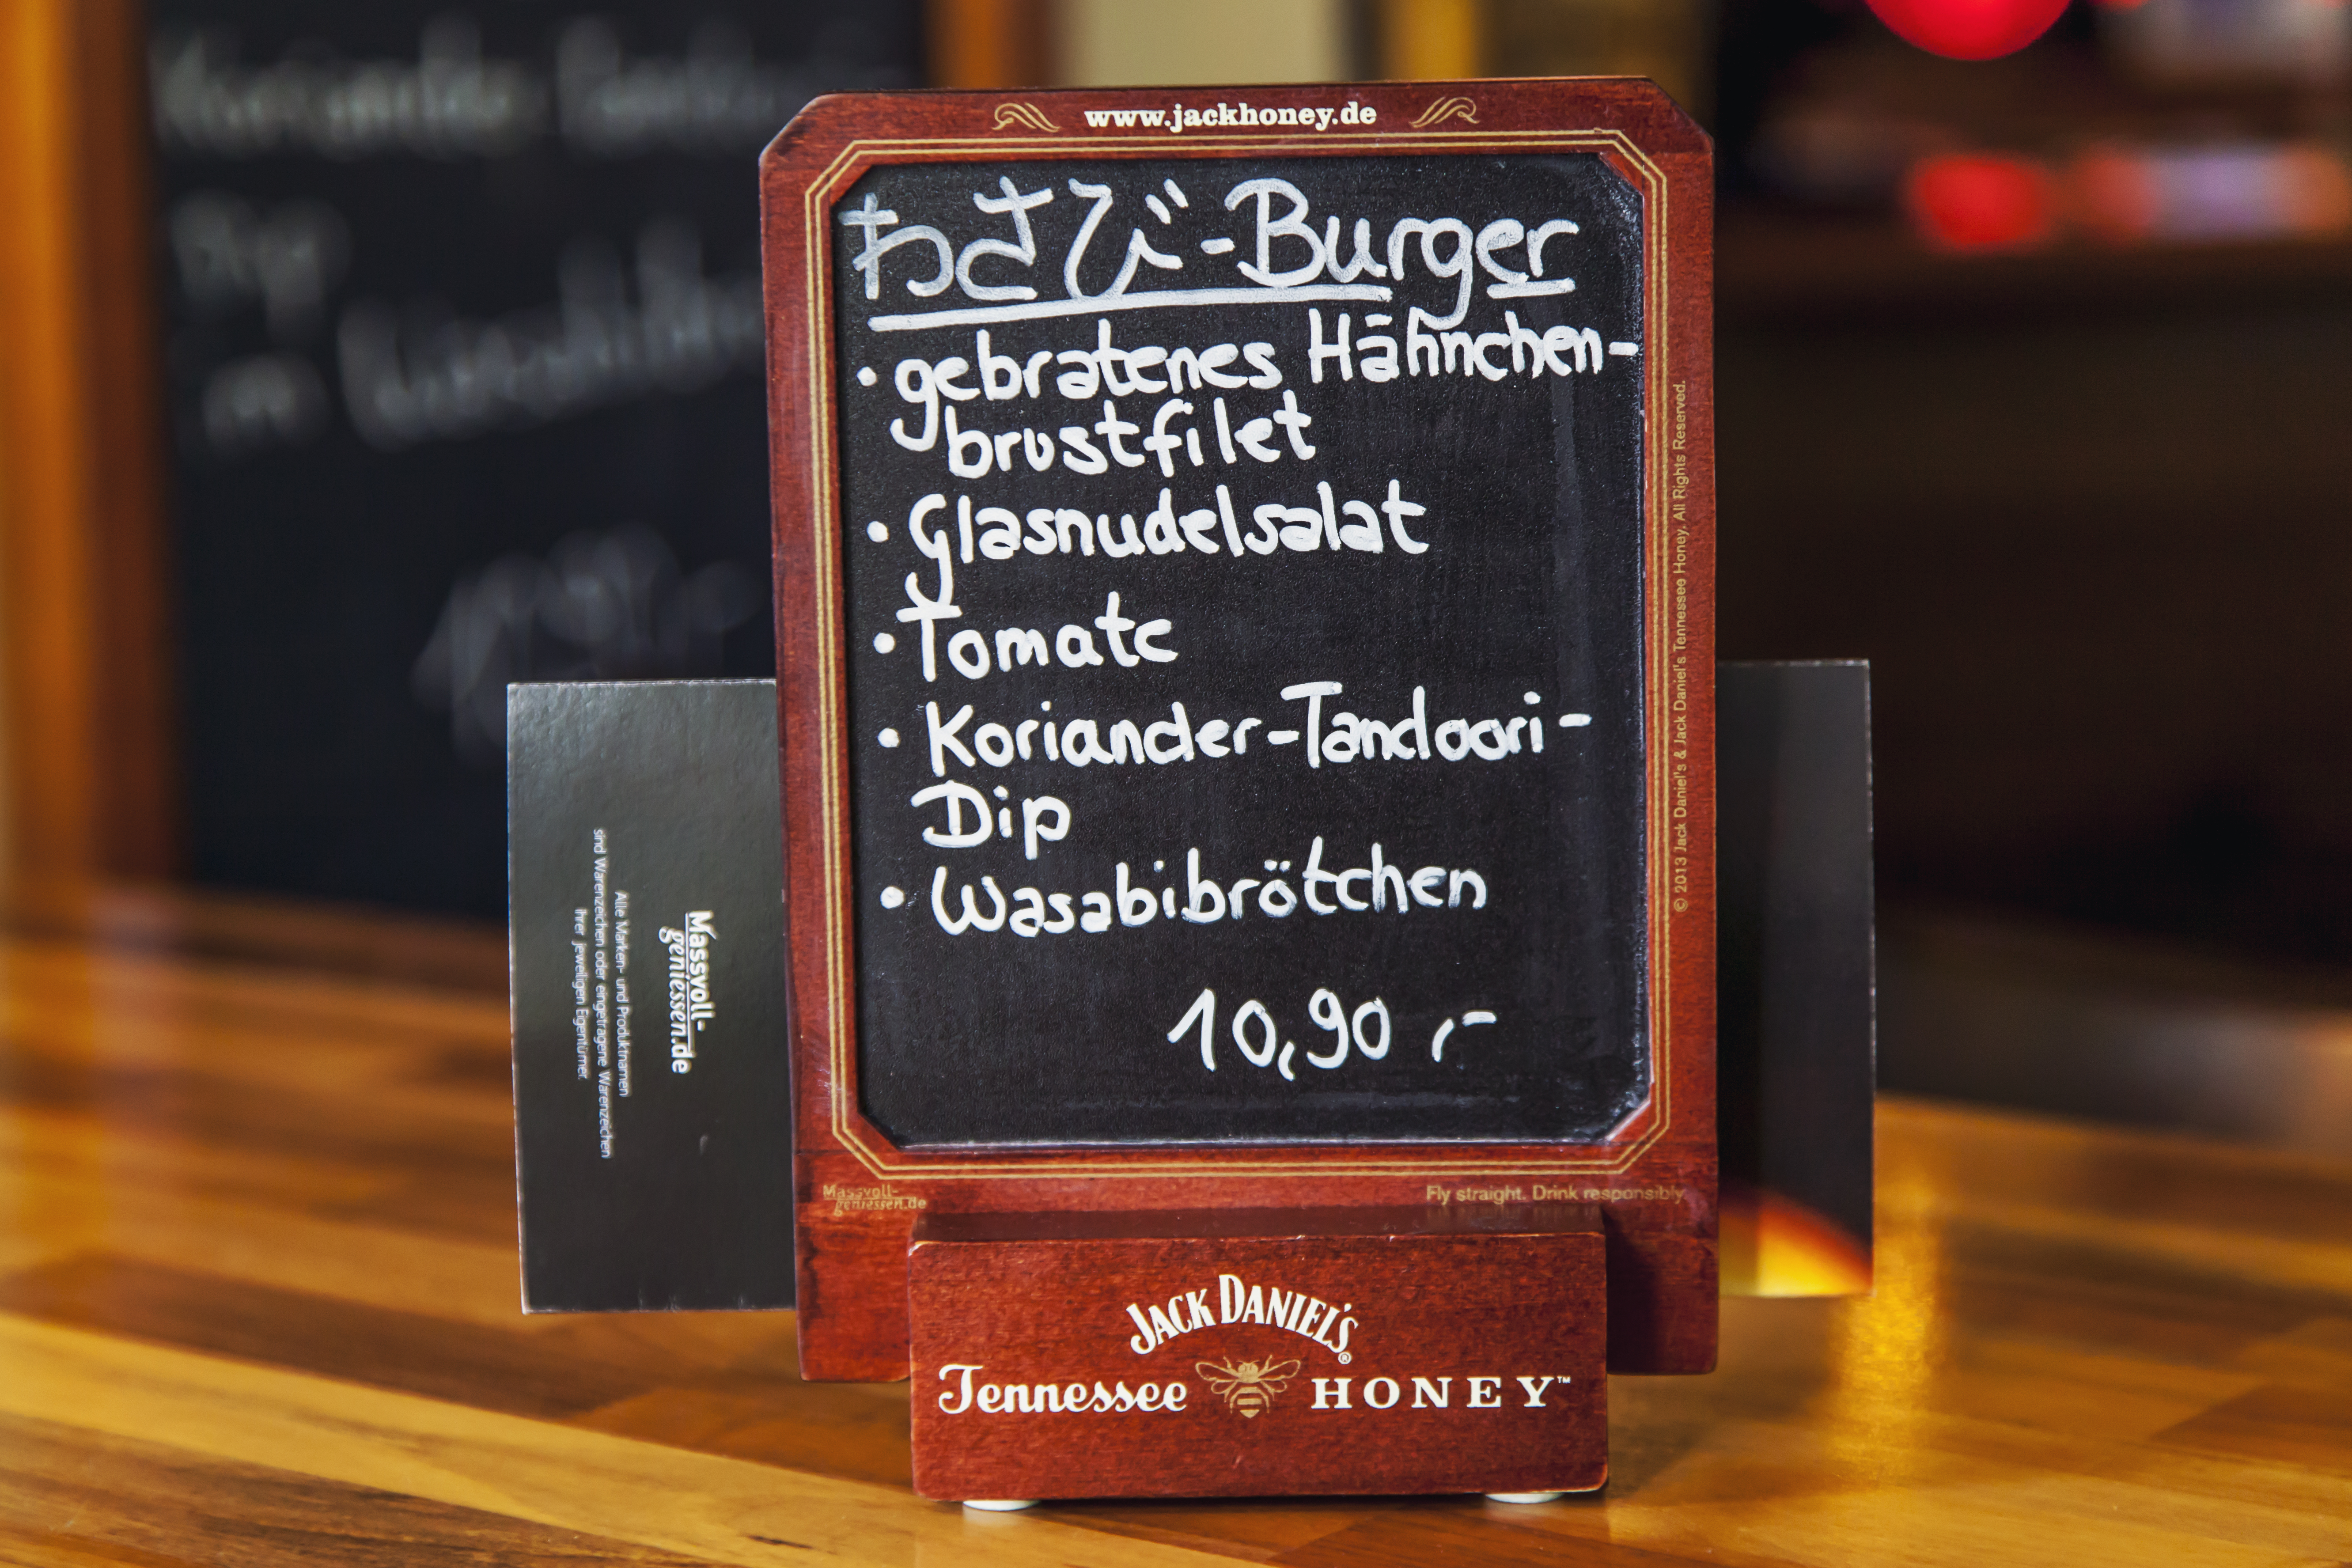 www.jackhoney.de
わさび-Burger
• gebratenes Hähnchen-
brustfilet
• Glasnudelsalat
• Tomate
• Koriander-Tandoori-
Dip
• Wasabibrötchen
10,90 ,-
© 2013 Jack Daniel's & Jack Daniel's Tennessee Honey. All Rights Reserved.
Massvoll-
geniessen.de
Fly straight. Drink responsibly.
JACK DANIEL'S®
Tennessee HONEY™
Massvoll-
geniessen.de
Alle Marken- und Produktnamen
sind Warenzeichen oder eingetragene Warenzeichen
ihrer jeweiligen Eigentümer.